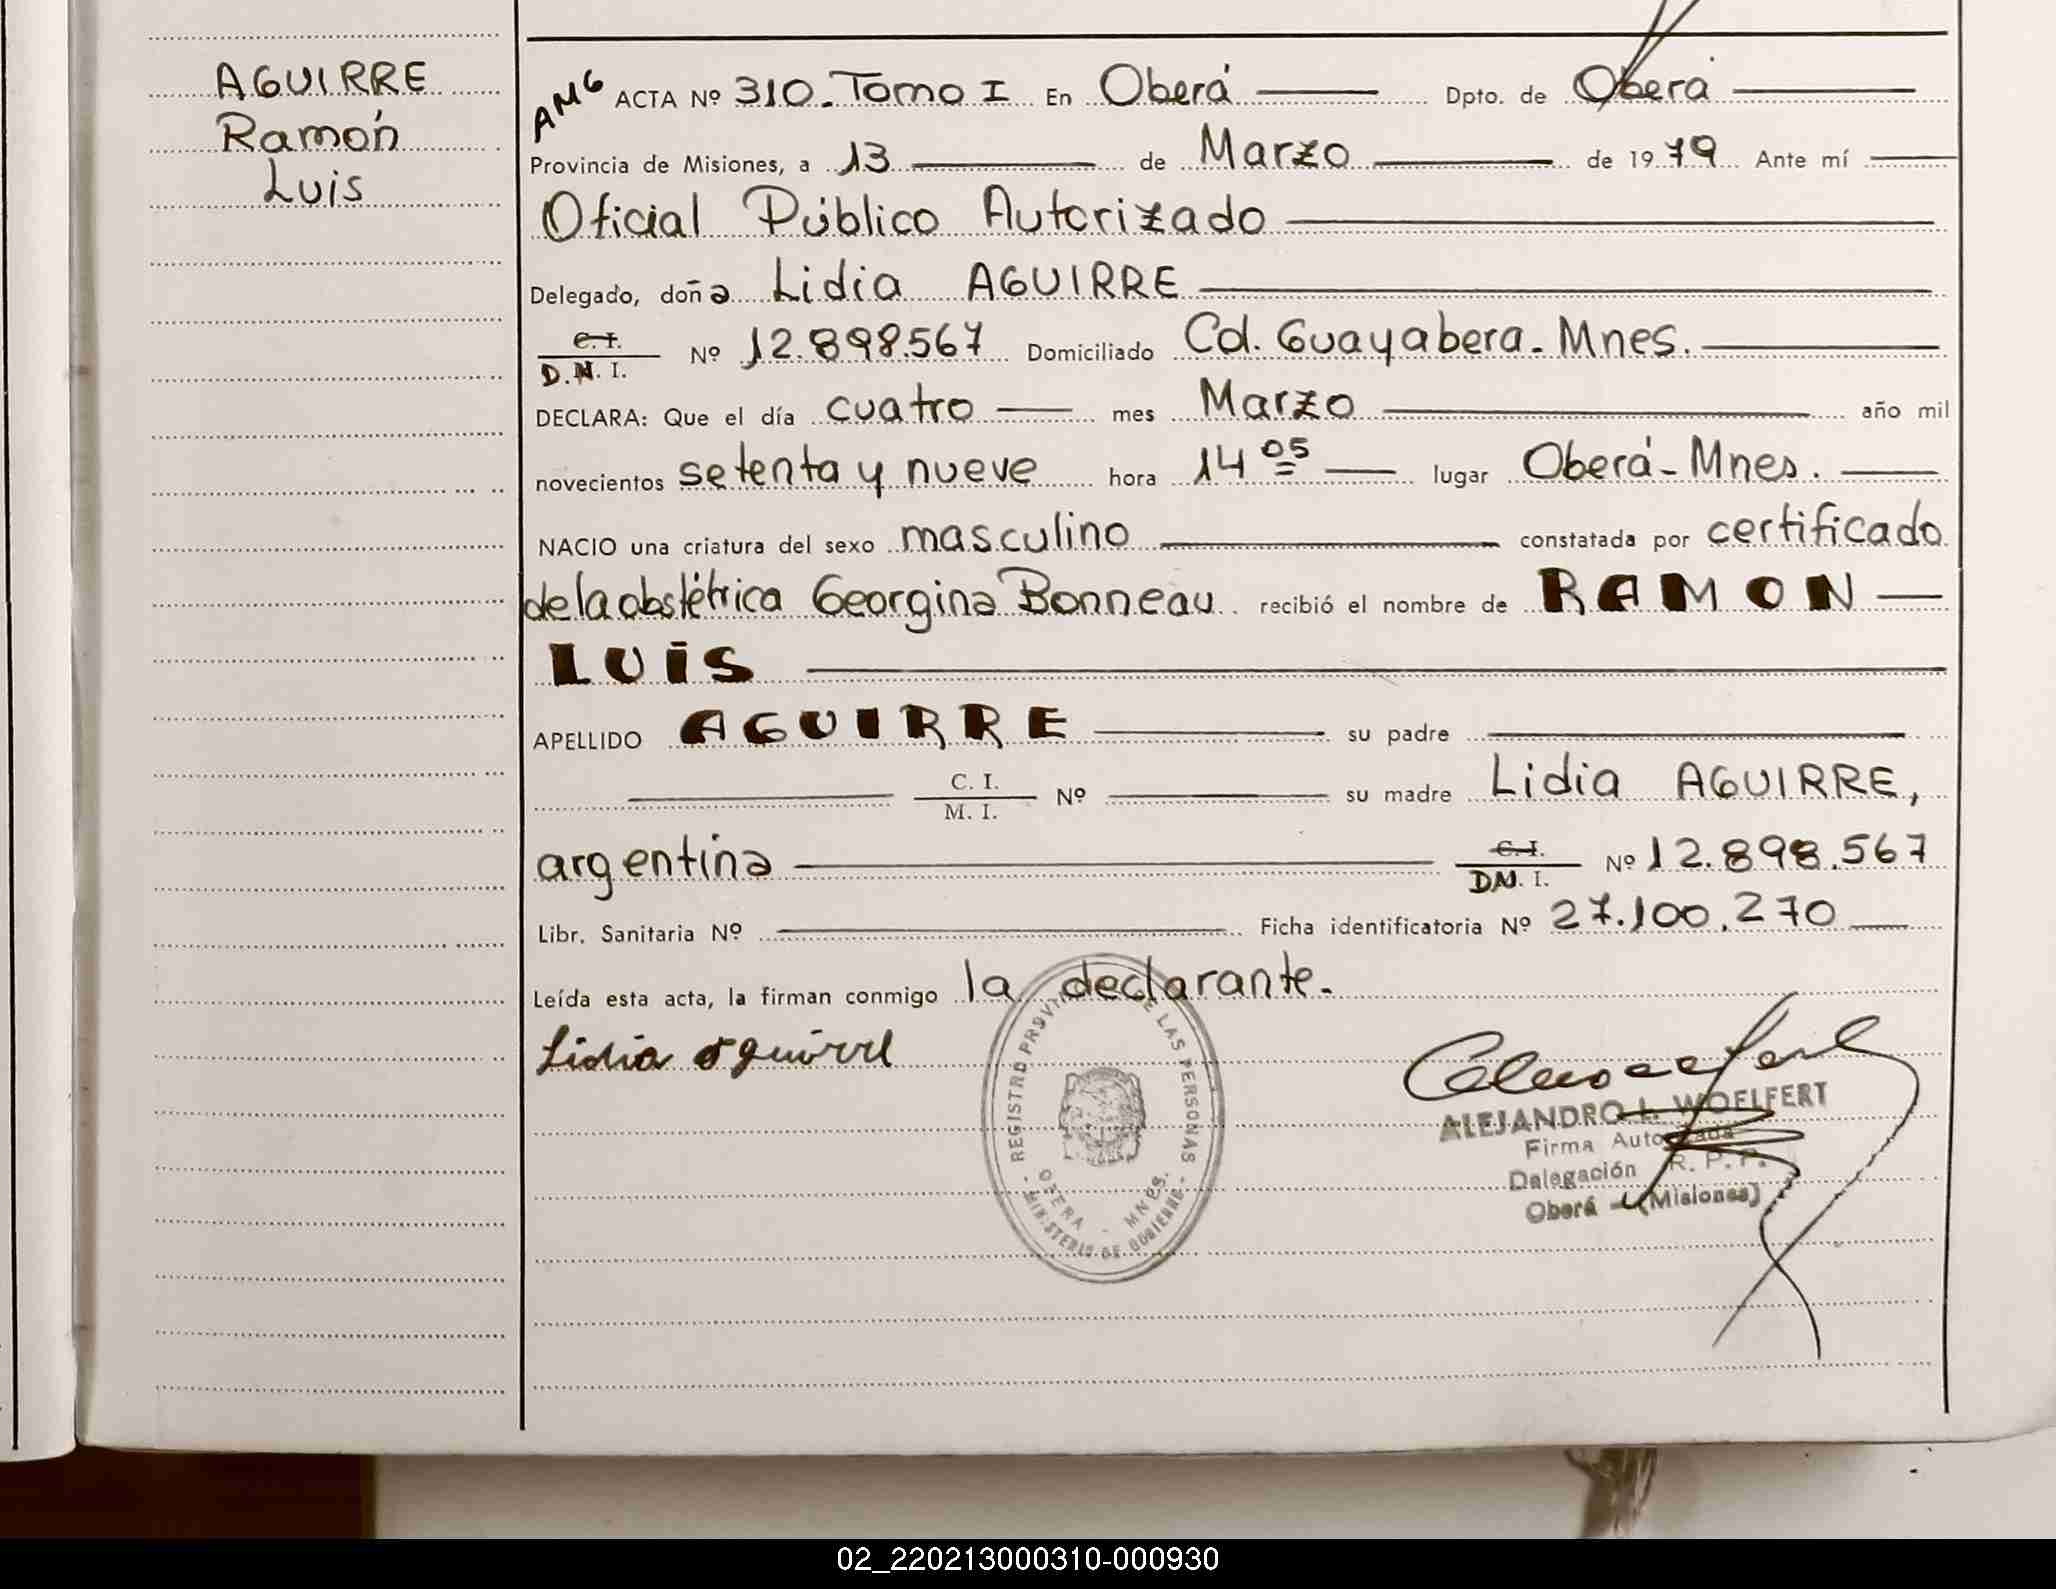 AGUIRRE
Ramón
Luis
AMG ACTA Nº 310. Tomo I En Oberá Dpto. de Oberá
Provincia de Misiones, a 13 de Marzo de 1979 Ante mí
Oficial Público Autorizado
Delegado, doña Lidia AGUIRRE
C. I.
D.N.I. Nº 12.898.567 Domiciliado Cd. Guayabera. Mnes.
DECLARA: Que el día cuatro mes Marzo año mil
novecientos setenta y nueve hora 14 05 lugar Oberá - Mnes.
NACIO una criatura del sexo masculino constatada por certificado
de la obstétrica Georgina Bonneau recibió el nombre de RAMON
LUIS
APELLIDO AGUIRRE su padre
C. I.
M. I. Nº su madre Lidia AGUIRRE,
argentina C. I.
DN. I. Nº 12.898.567
Libr. Sanitaria Nº Ficha identificatoria Nº 27.100.270
Leída esta acta, la firman conmigo la declarante.
Lidia aguirre
REGISTRO PROVINCIAL DE LAS PERSONAS
OBERA - MNES.
- MINISTERIO DE GOBIERNO -
ALEJANDRO L. WOELFERT
Firma Autorizada
Delegación R. P. P.
Oberá - (Misiones)
02_220213000310-000930